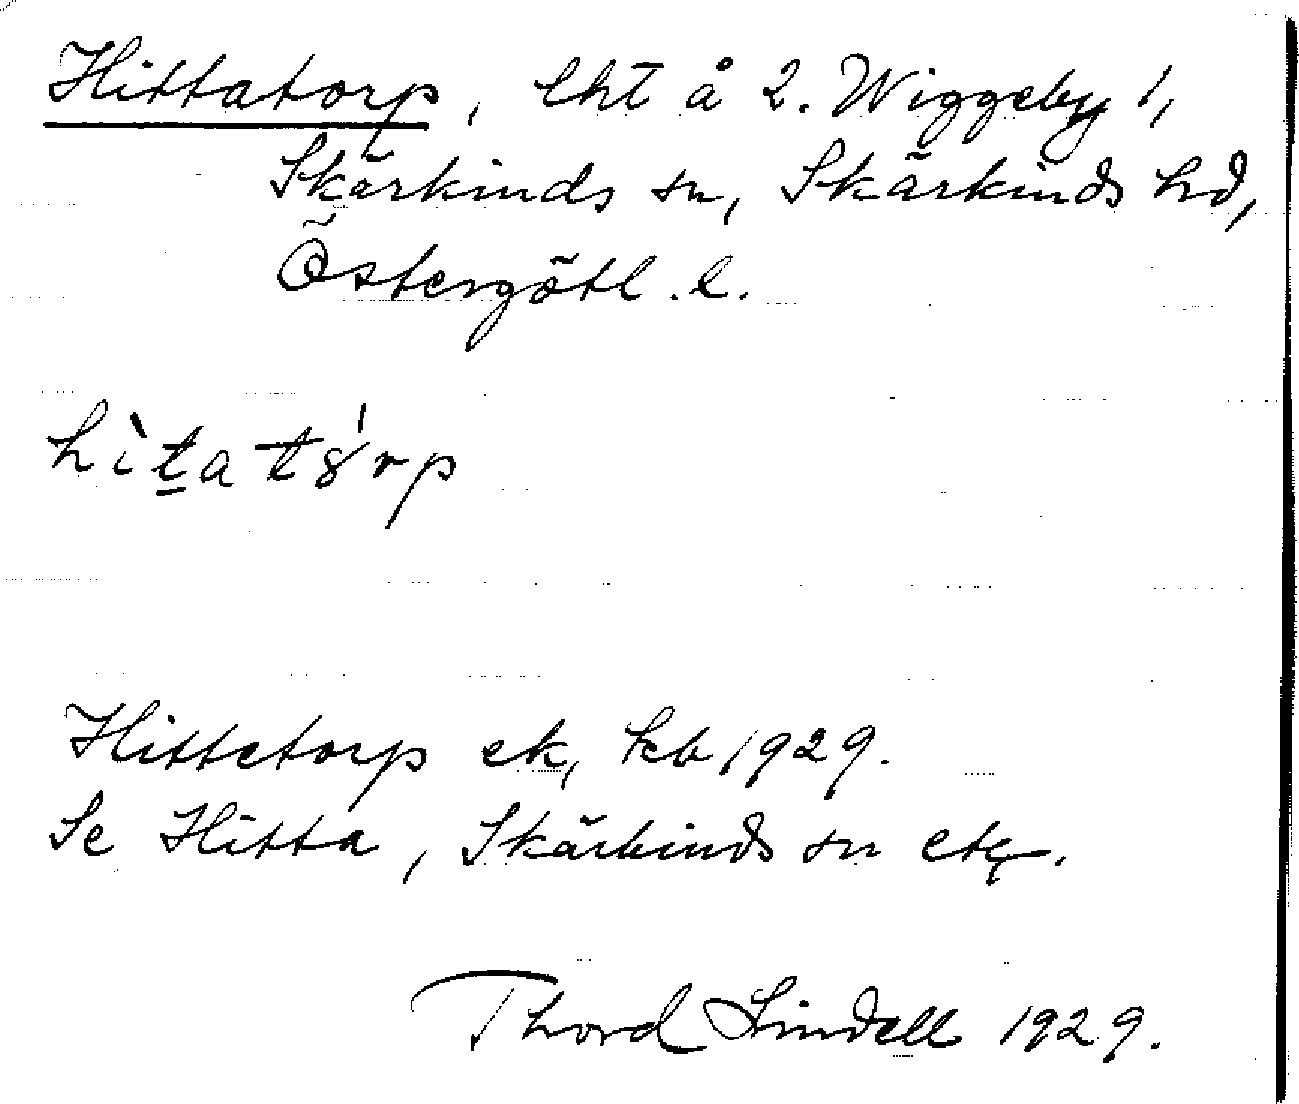 Hittatorp, lht å 2. Wiggeby 1,
Skärkinds sn, Skärkinds hd,
Östergötl. l.
hìt̲a tȣ́rp
Hittetorp ek, kb 1929.
Se Hitta, Skärkinds sn etc.
Thord Lindell 1929.